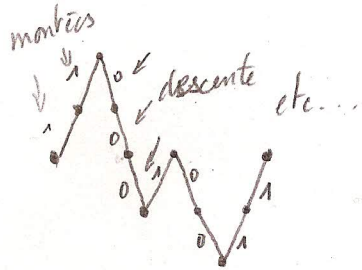 montées
1 1 0
descente
etc...
0
0 1 0
0 1 1